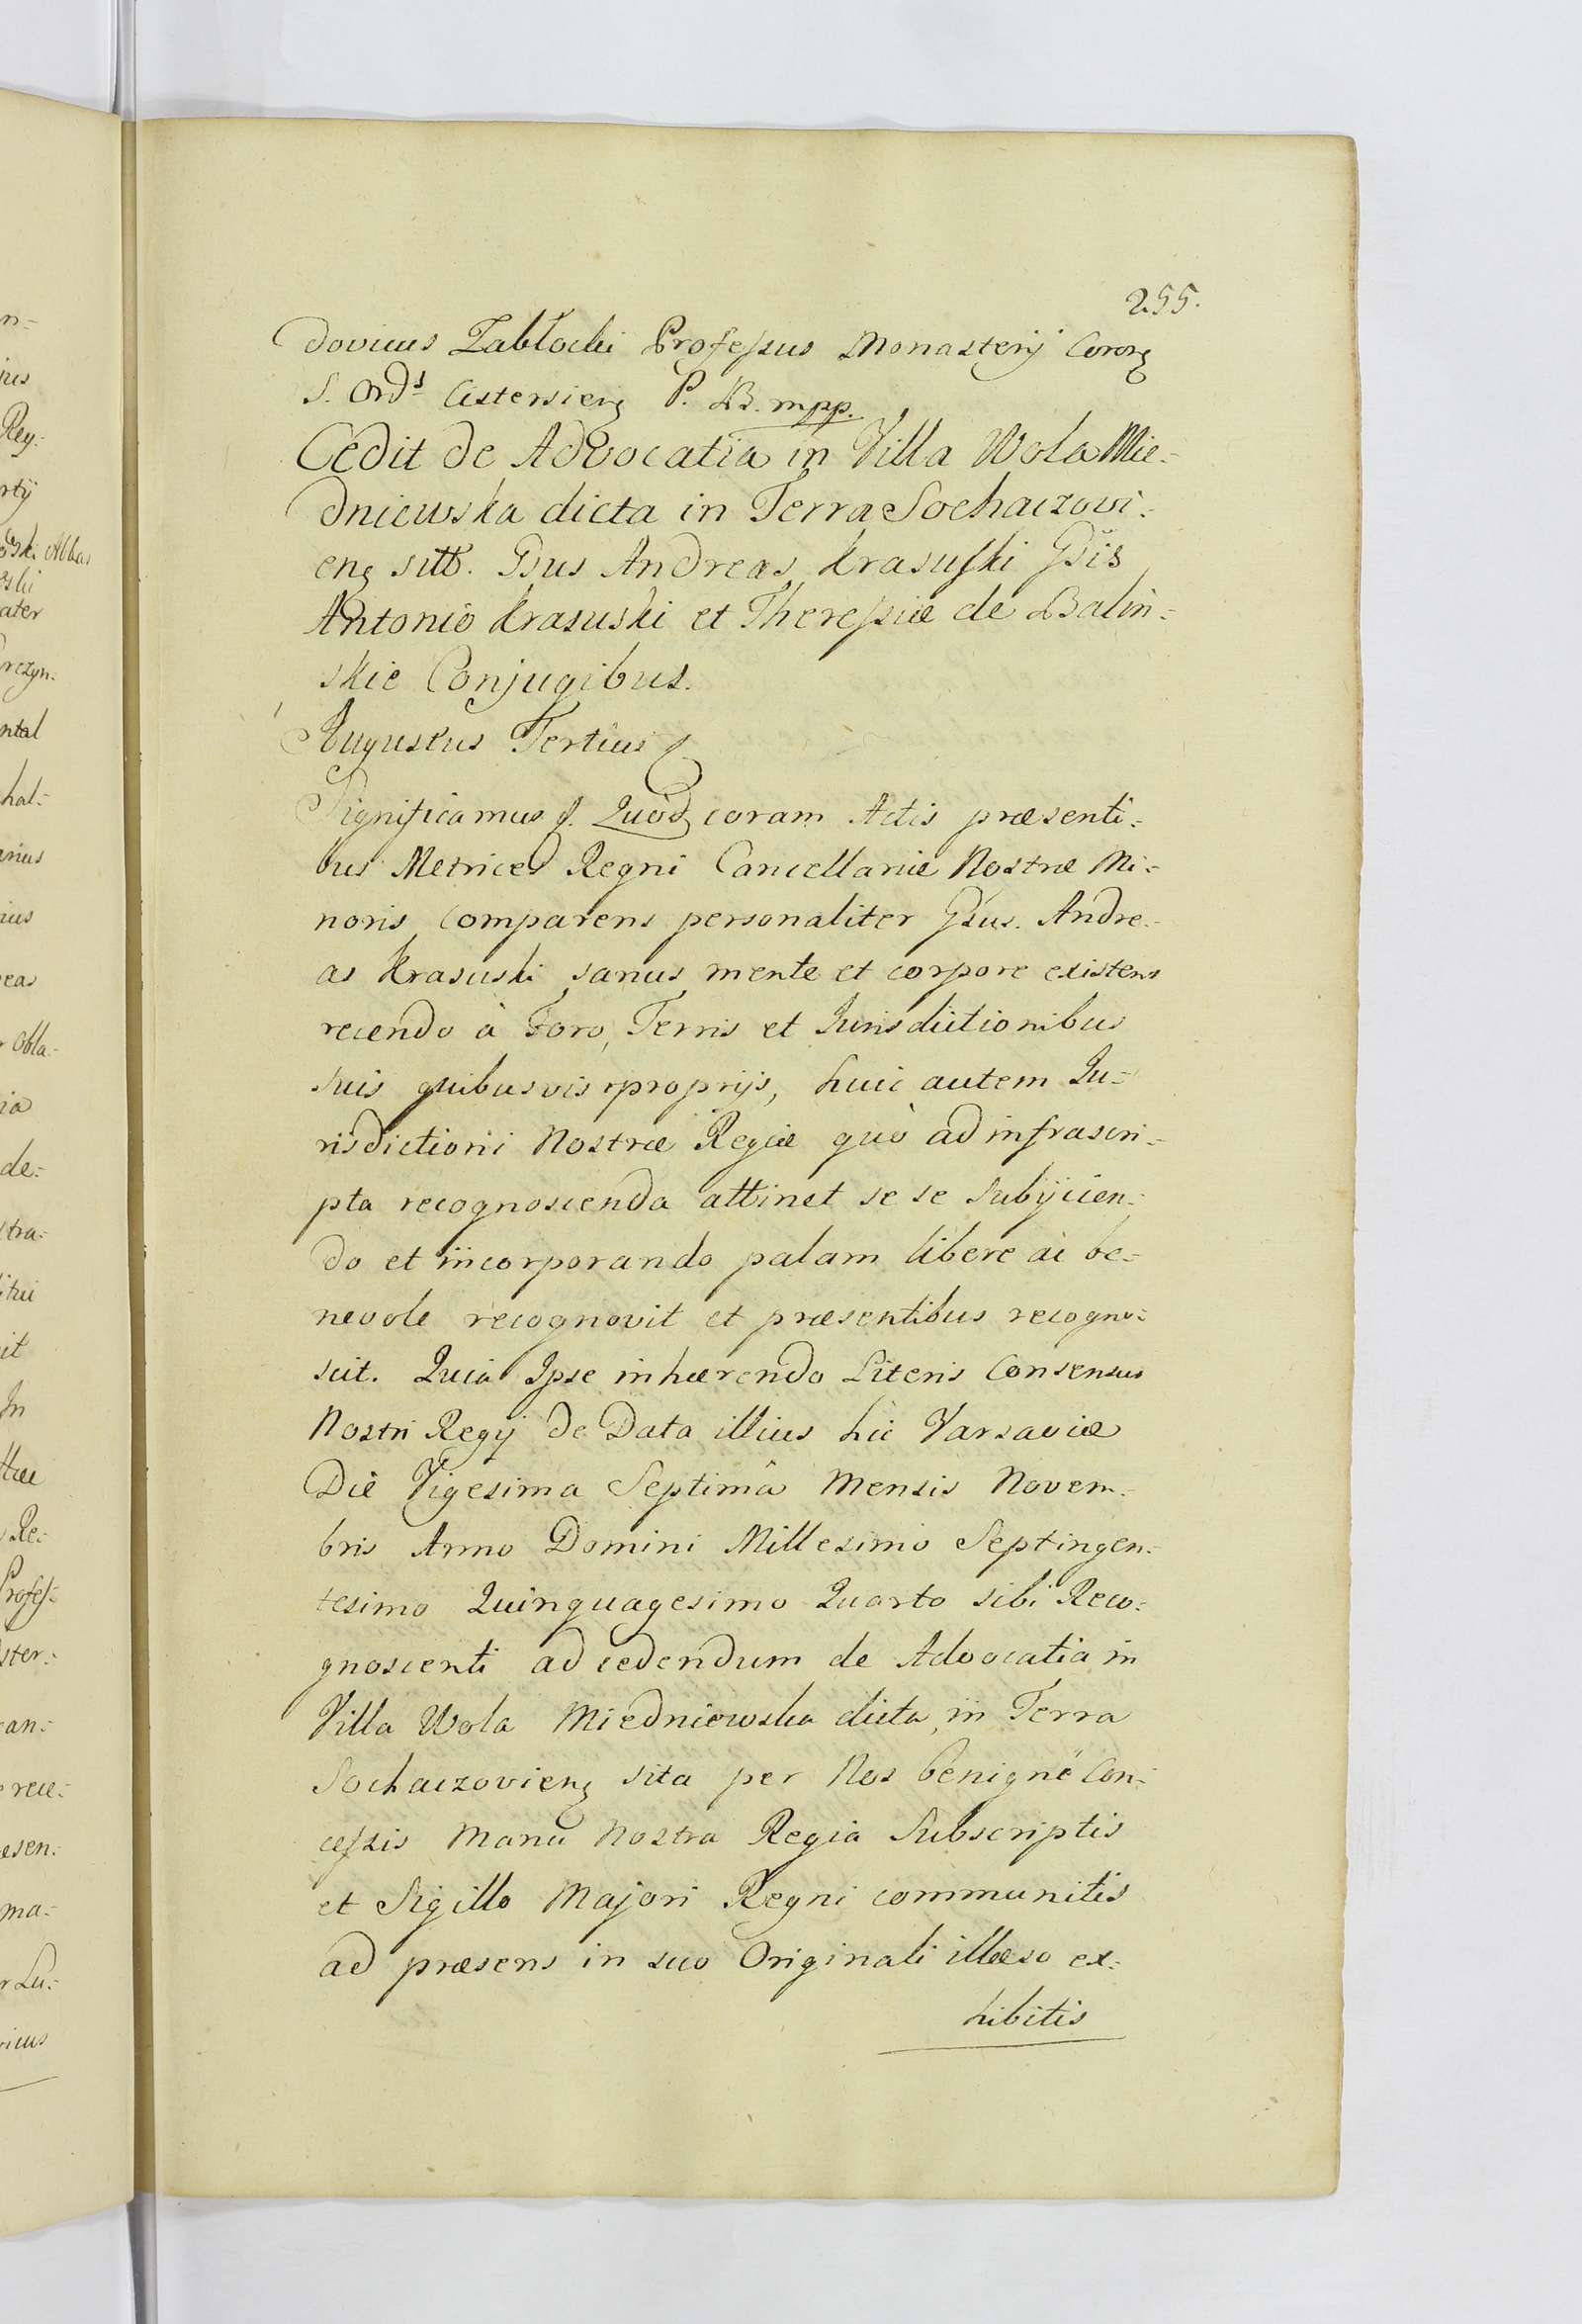 255.
dovicus Zabłocki Professus Monasterÿ Coron
S. Ords Cisterciens P. B. mpp.
Cedit de Advocatia in Villa Wola Mie=
dniewska dicta in Terra Sochaczovi=
ens sitt. Gsus Andreas Krasuski Gsis
Antonio Krasuski et Theressiæ de Balin=
skie Conjugibus.
Augustus Tertius
Significamus Quod coram Actis præsenti=
bus Metrices Regni Cancellariæ Nostræ Mi=
noris comparens personaliter Gsus. Andre=
as Krasuski sanus mente et corpore existens
recendo à Foro, Terris et Jurisdictionibus
suis quibusvis proprijs, huic autem Ju=
risdictioni Nostræ Regiæ quò ad infrascri=
pta recognoscenda attinet se se subijcien=
do et incorporando palam libere ac be=
nevole recognovit et præsentibus recogno=
scit. Quia Ipse inhærendo Literis Consensus
Nostri Regij de Data illius hic Varsaviæ
Die Vigesima Septimâ Mensis Novem=
bris Anno Domini Millesimo Septingen=
tesimo Quinquagesimo Quarto sibi Reco=
gnoscenti ad cedendum de Advocatia in
Villa Wola Miedniewska dicta in Terra
Sochaczoviens sita per Nos benignè Con=
cessis Manu Nostra Regia Subscriptis
et Sigillo Majori Regni communitis
ad præsens in suo Originali illæso ex=
hibitis